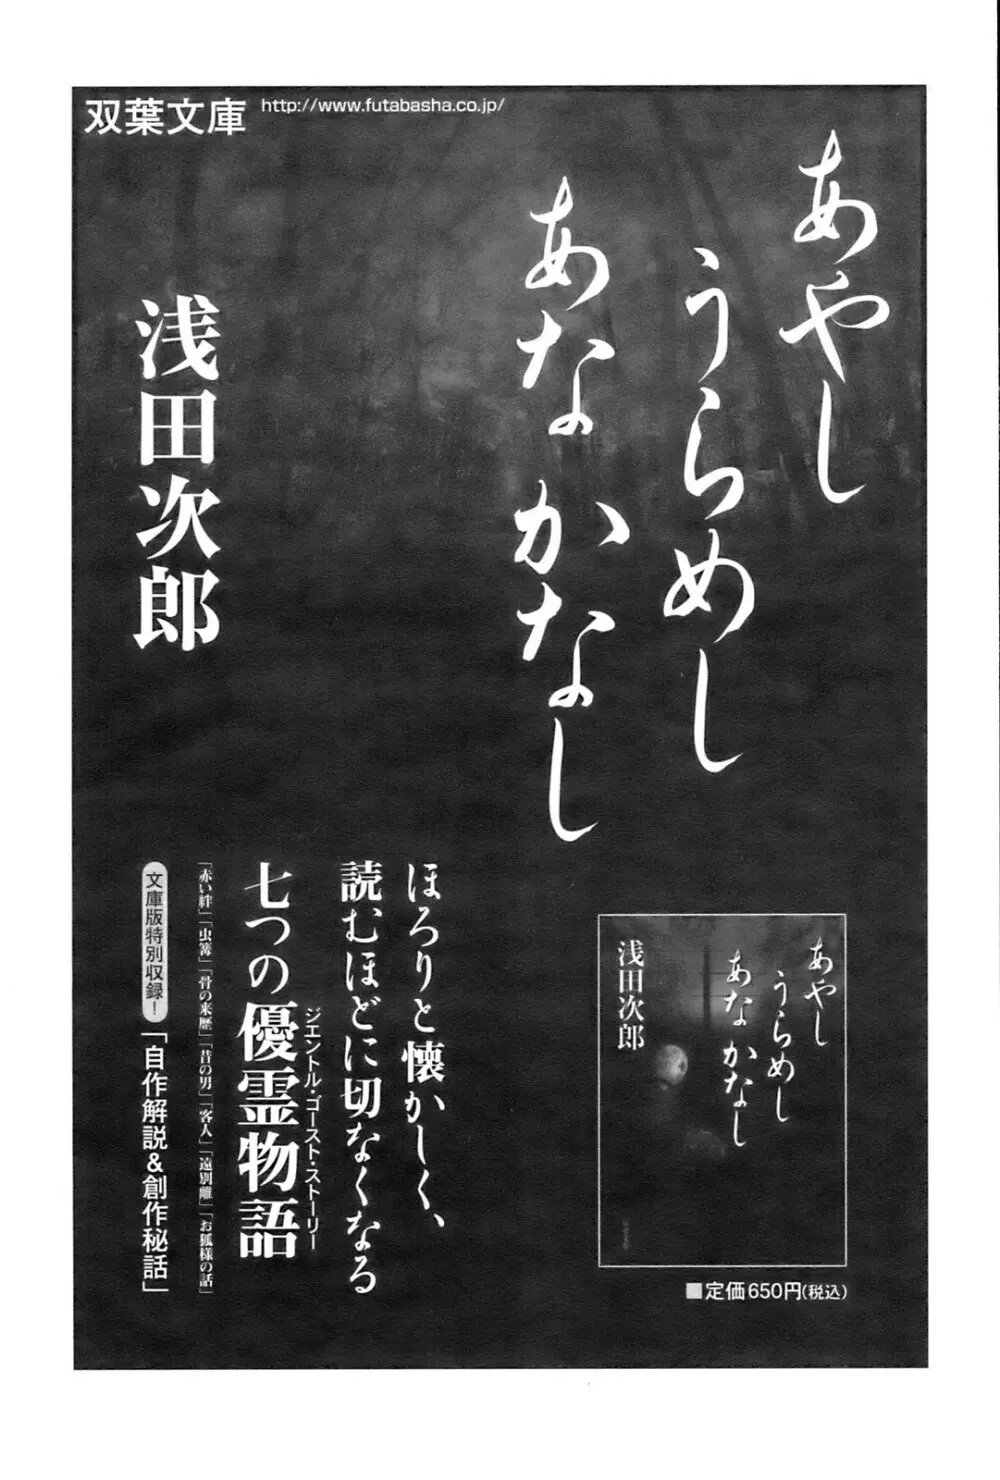 双葉文庫 http://www.futabasha.co.jp/
あやし
うらめし
あな かなし
浅田次郎
ほろりと懐かしく、
読むほどに切なくなる
七つの優霊物語
ジェントル・ゴースト・ストーリー
「赤い絆」「虫篝」「骨の来歴」「昔の男」「客人」「遠別離」「お狐様の話」
文庫版特別収録！「自作解説&創作秘話」
あやし
うらめし
あな かなし
浅田次郎
■定価650円(税込)